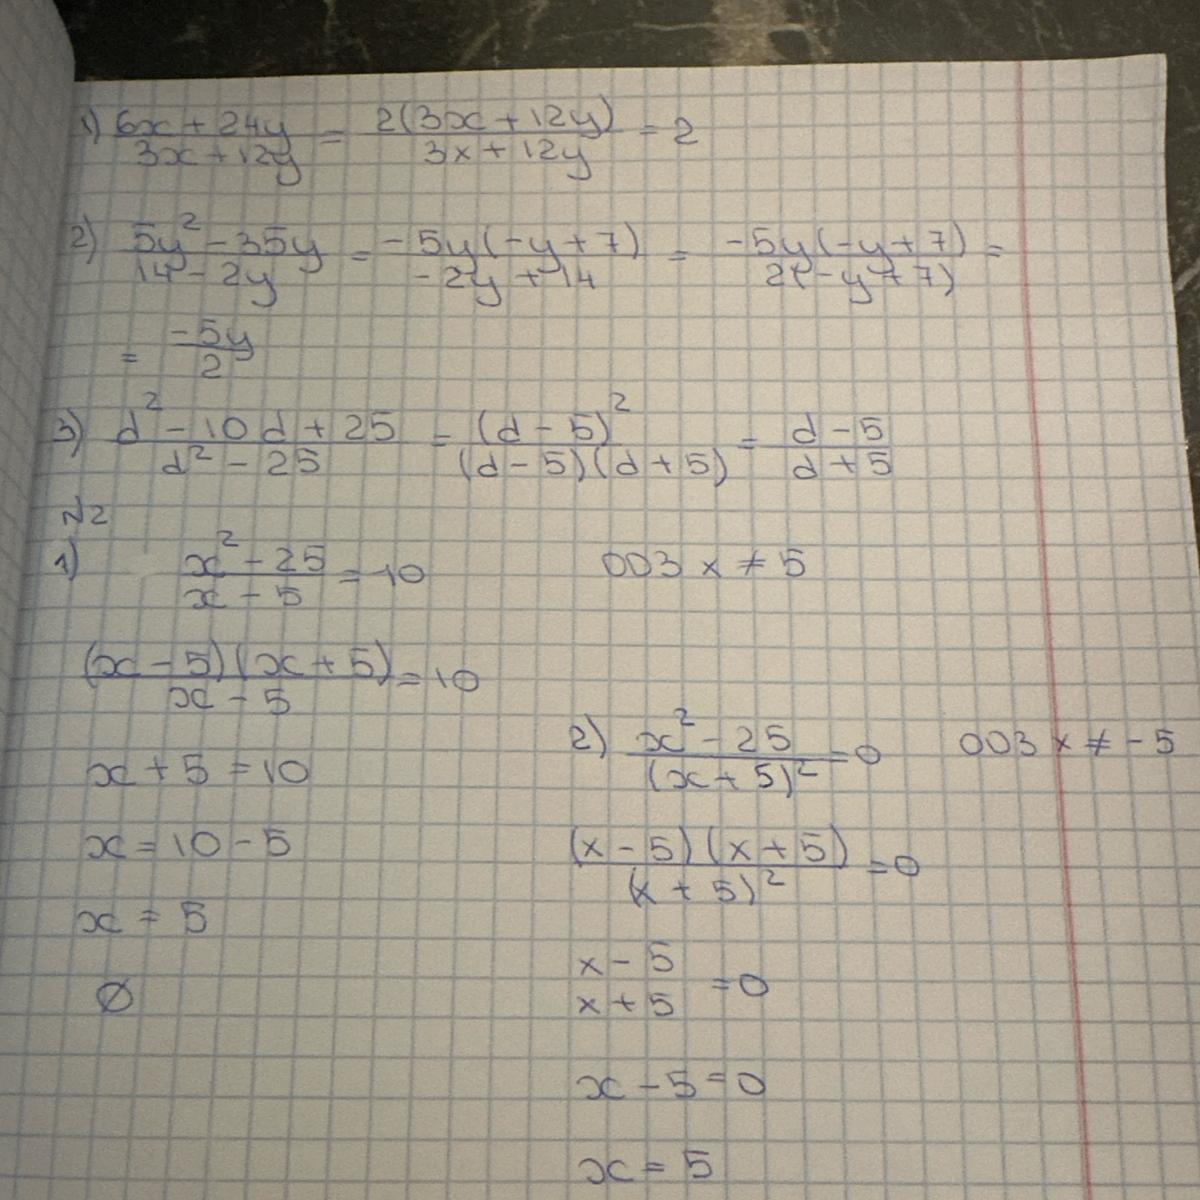 1) (6x + 24y)/(3x + 12y) = 2(3x + 12y)/(3x + 12y) = 2
2) (5y² - 35y)/(14 - 2y) = -5y(-y + 7)/(-2y + 14) = -5y(-y + 7)/2(-y + 7) =
= -5y/2
3) (d² - 10d + 25)/(d² - 25) = (d - 5)²/(d - 5)(d + 5) = (d - 5)/(d + 5)
№2
1) (x² - 25)/(x - 5) = 10 ОДЗ x ≠ 5
(x - 5)(x + 5)/(x - 5) = 10
x + 5 = 10
x = 10 - 5
x = 5
∅
2) (x² - 25)/(x + 5)² = 0 ОДЗ x ≠ -5
(x - 5)(x + 5)/(x + 5)² = 0
(x - 5)/(x + 5) = 0
x - 5 = 0
x = 5